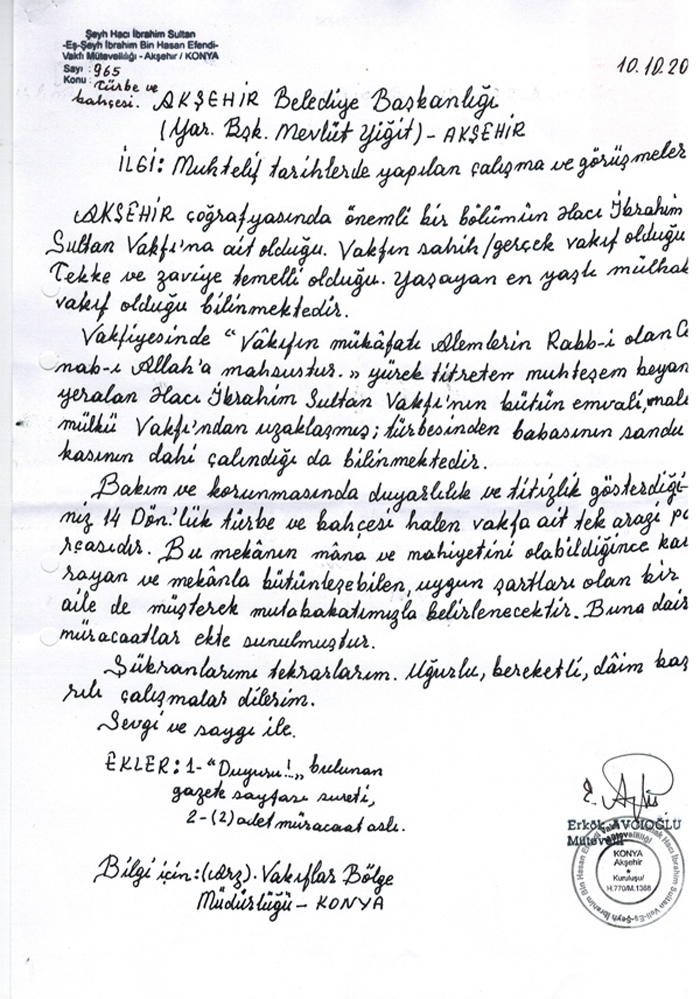 Şeyh Hacı İbrahim Sultan
-Eş-Şeyh İbrahim Bin Hasan Efendi-
Vakfı Mütevelliliği - Akşehir / KONYA
Sayı : 965
10.10.20
Konu : Türbe ve
bahçesi.
AKŞEHİR Belediye Başkanlığı
(Yar. Bşk. Mevlüt Yiğit) - AKŞEHİR
İLGİ: Muhtelif tarihlerde yapılan çalışma ve görüşmeler
AKŞEHİR çoğrafyasında önemli bir bölümün Hacı İbrahim
Sultan Vakfı'na ait olduğu. Vakfın sahih/gerçek vakıf olduğu
Tekke ve zaviye temelli olduğu. Yaşayan en yaşlı mülhak
vakıf olduğu bilinmektedir.
Vakfiyesinde "Vâkıfın mükâfatı Alemlerin Rabb-i olan C
nab-ı Allah'a mahsustur.» yürek titreten muhteşem beyan
yeralan Hacı İbrahim Sultan Vakfı'nın bütün emvali, malı
mülkü Vakfı'ndan uzaklaşmış; türbesinden babasının sandu
kasının dahi çalındığı da bilinmektedir.
Bakım ve korunmasında duyarlılık ve titizlik gösterdiği-
niz 14 Dön.'lük türbe ve bahçesi halen vakfa ait tek arazi pa
rçasıdır. Bu mekânın mâna ve mahiyetini olabildiğince kav
rayan ve mekânla bütünleşebilen, uygun şartları olan bir
aile de müşterek mutabakatımızla belirlenecektir. Buna dair
müracaatlar ekte sunulmuştur.
Şükranlarımı tekrarlarım. Uğurlu, bereketli, dâim baş
rılı çalışmalar dilerim.
Sevgi ve saygı ile.
EKLER: 1- "Duyuru!„ bulunan
gazete sayfası sureti,
2-(2) adet müracaat aslı.
Erkök AVCIOĞLU
Mütevelli
KONYA
Akşehir
Kuruluşu
H.770/M.1368
Bilgi için: (Arz). Vakıflar Bölge
Müdürlüğü - KONYA